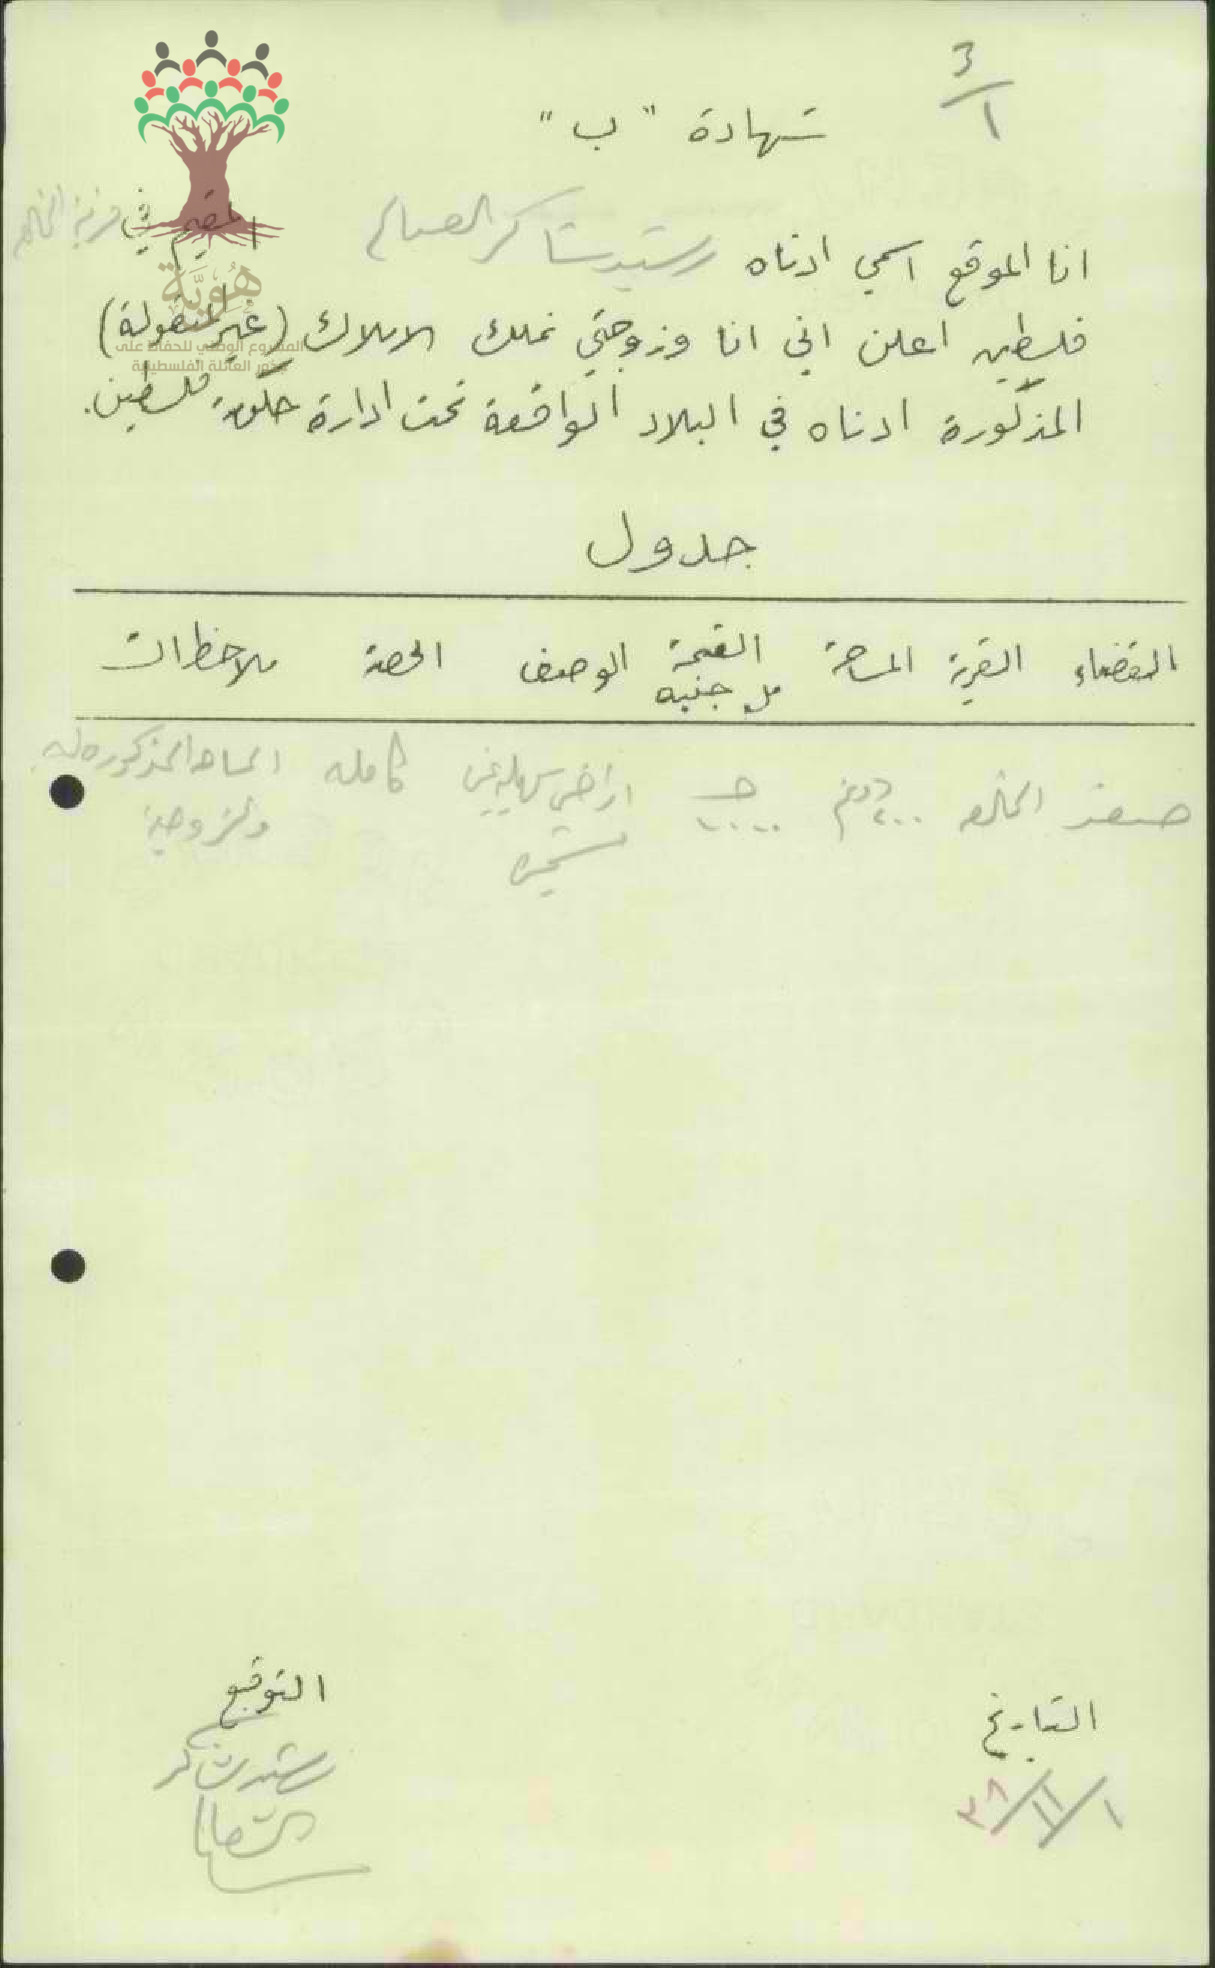 3/1
شهادة "ب"
انا الموقع اسمي ادناه رشيد شاكر الصالح المقيم في قرية
فلسطين اعلن اني انا وزوجتي نملك الاملاك (غير المنقولة)
المذكورة ادناه في البلاد الواقعة تحت ادارة حكومة فلسطين.
هُوِيَّة
المشروع الوطني للحفاظ على
جذور العائلة الفلسطينية
جدول
القضاء القرية المساحة القيمة الوصف الحصة ملاحظات
مل جنيه
صفد دونم اراضي سهليه كامله المساحه المذكوره له
والزوجين
التوقيع
التاريخ
رشيد شاكر